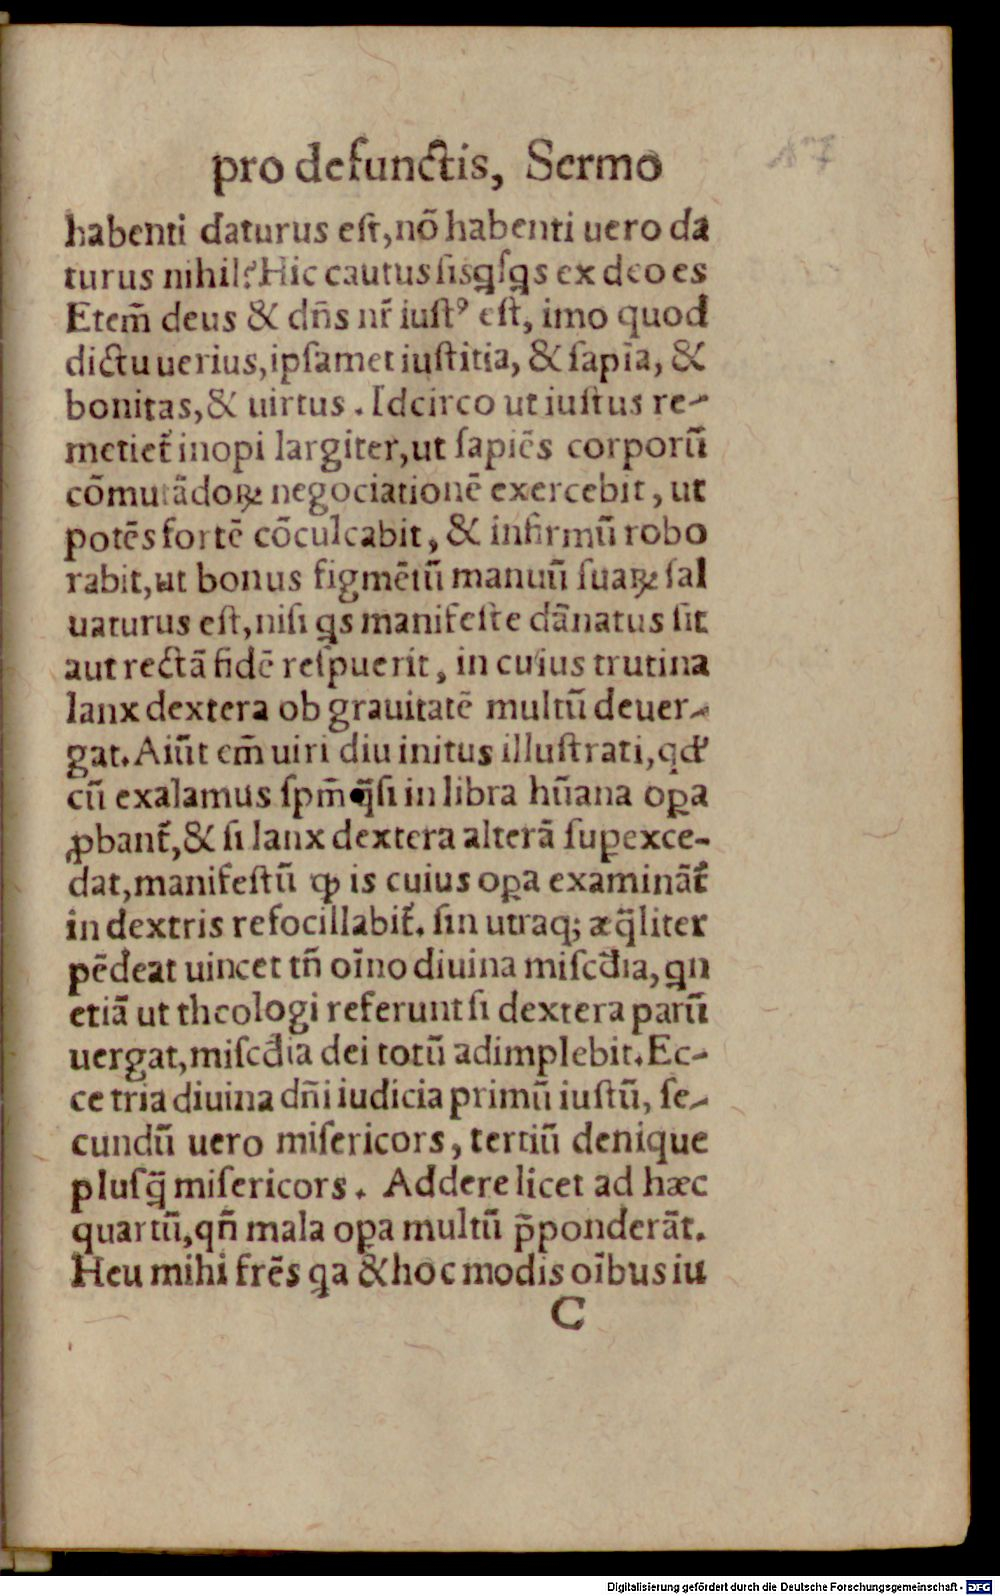 pro defunctis, Sermo
habenti daturus eſt, nō habenti uero da
turus nihil? Hic cautus ſis qſqs ex deo es
Etem̄ deus & dn̄s nr̄ iuſtꝰ eſt, imo quod
dictu uerius, ipſamet iuſtitia, & ſapīa, &
bonitas, & uirtus. Idcirco ut iuſtus re-
metiet̄ inopi largiter, ut ſapiēs corporū
cōmutādoꝝ negociationē exercebit, ut
potēs fortē cōculcabit, & infirmū robo
rabit, ut bonus figmētū manuū ſuaꝝ ſal
uaturus eſt, niſi qs manifeſte dānatus ſit
aut rectā fidē reſpuerit, in cuius trutina
lanx dextera ob grauitatē multū deuer-
gat. Aiūt em̄ uiri diuinitus illuſtrati, qd'
cū exalamus ſpm̄ q̄ſi in libra hūana oꝑa
ꝓbant̄, & ſi lanx dextera alterā ſuꝑexce-
dat, manifeſtū ꝙ is cuius oꝑa examināt̄
in dextris refocillabit̄. ſin utraq; æq̄liter
pēdeat uincet tn̄ oīno diuina miſcd̄ia, qn
etiā ut theologi referunt ſi dextera parū
uergat, miſcd̄ia dei totū adimplebit. Ec-
ce tria diuina dn̄i iudicia primū iuſtū, ſe-
cundū uero miſericors, tertiū denique
pluſq̄ miſericors. Addere licet ad hæc
quartū, qn̄ mala oꝑa multū p̄ponderāt.
Heu mihi frēs qa & hoc modis oībus iu
C
Digitalisierung gefördert durch die Deutsche Forschungsgemeinschaft - DFG